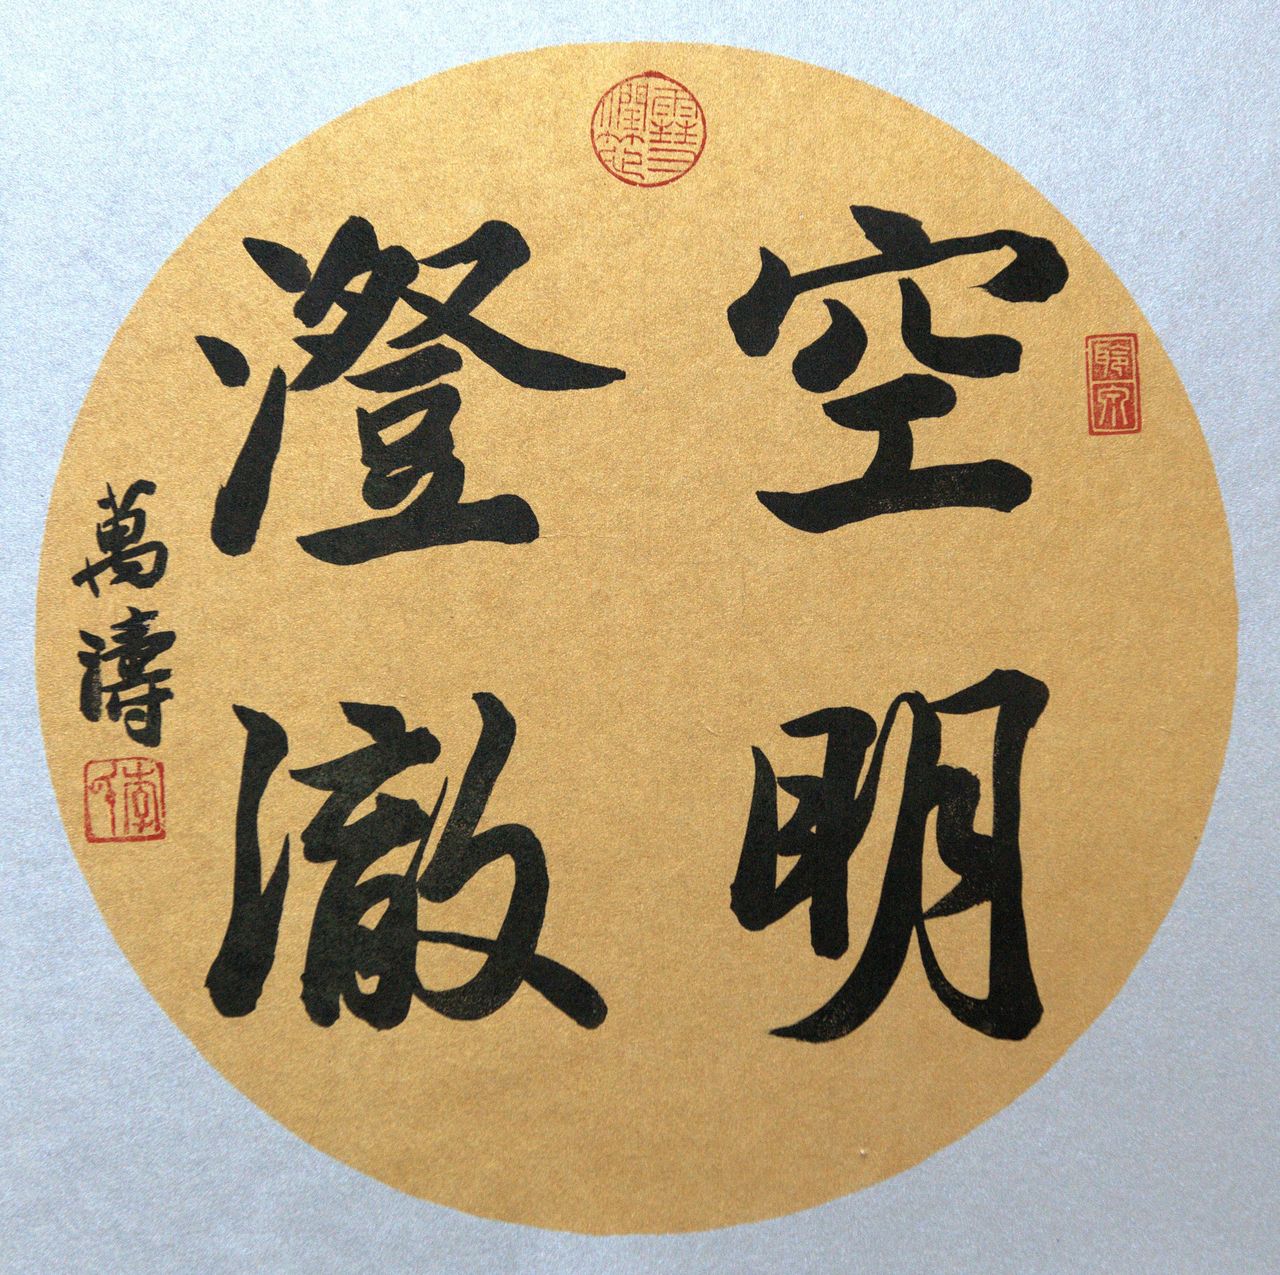 空明
澄澈
萬濤